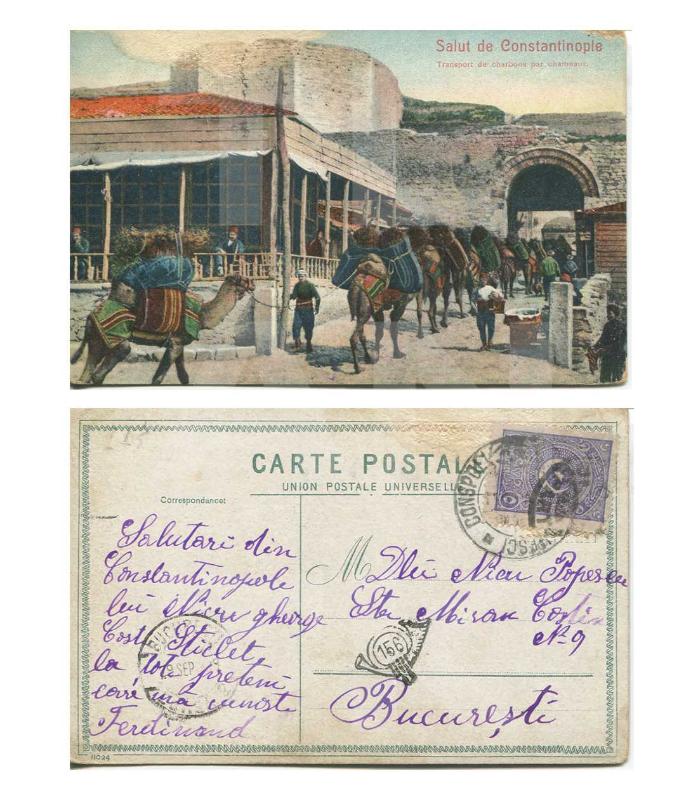 Salut de Constantinople
Transport de charbons par chameaux.
CARTE POSTALE
UNION POSTALE UNIVERSELLE
Correspondance:
Salutari din
Constantinopole
lui Nicu gheorge
Cost. Sticlet
la toţ preteni
care mă cunosc
Ferdinand
M Dlui Nicu Popescu
Sta Miron Costin
No 9
Bucureşti
SEP
156
11024